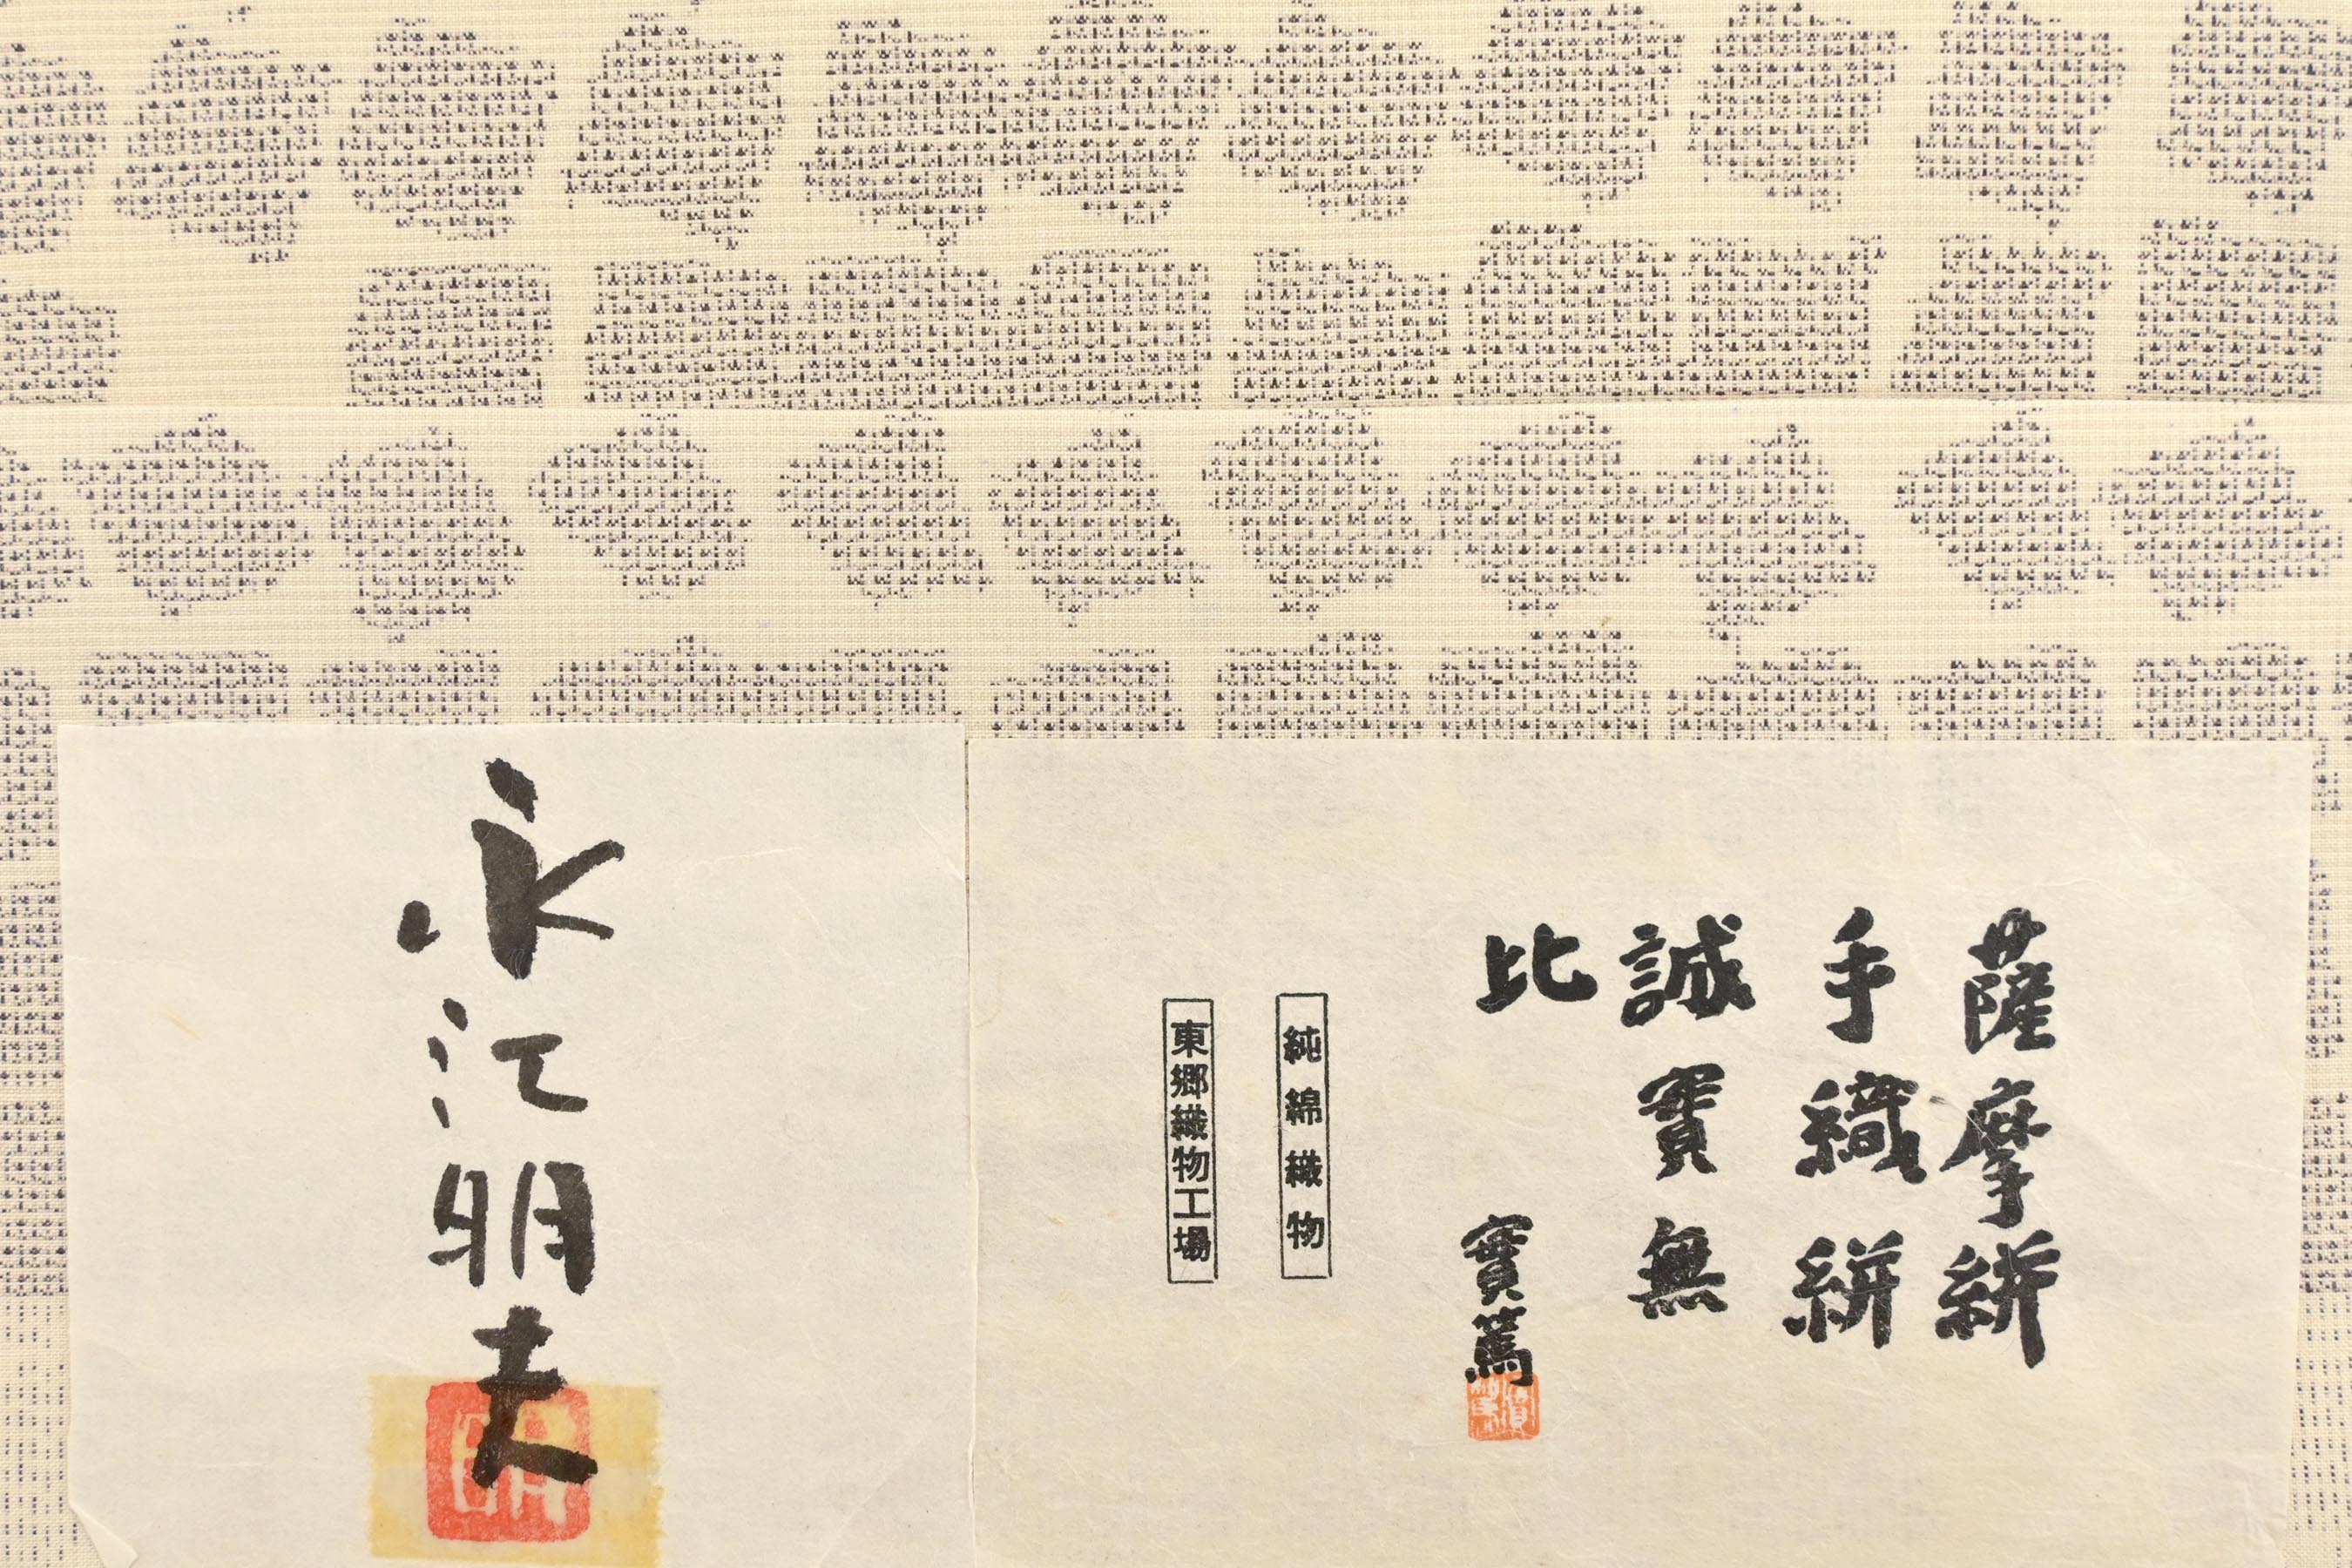 薩摩絣
手織絣
誠實無
比
實篤
純綿織物
東郷織物工場
永江明夫